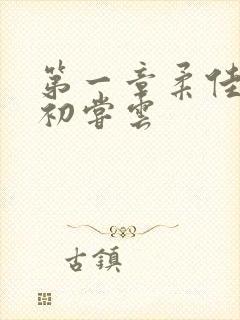 第一章柔佳
初尝雲
古鎮